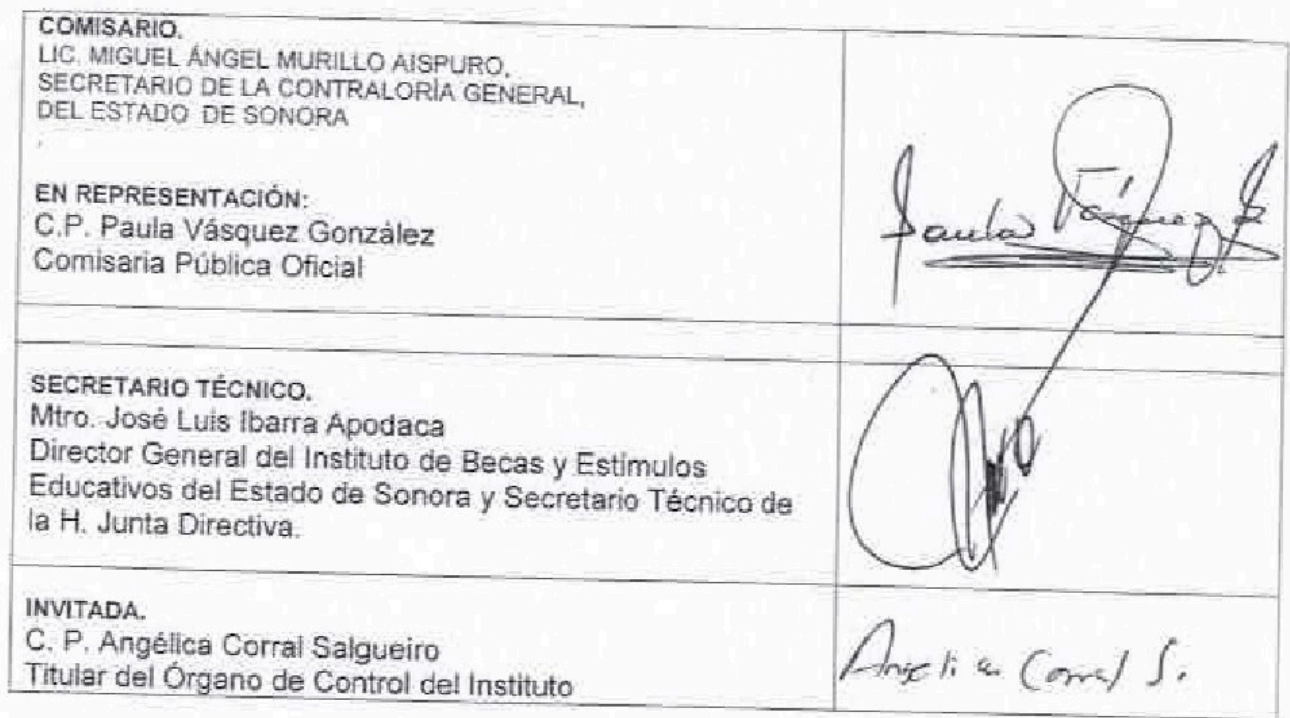 COMISARIO.
LIC. MIGUEL ÁNGEL MURILLO AISPURO,
SECRETARIO DE LA CONTRALORÍA GENERAL,
DEL ESTADO DE SONORA
EN REPRESENTACIÓN:
C.P. Paula Vásquez González
Comisaria Pública Oficial
Paula Vásquez G
SECRETARIO TÉCNICO.
Mtro. José Luis Ibarra Apodaca
Director General del Instituto de Becas y Estímulos
Educativos del Estado de Sonora y Secretario Técnico de
la H. Junta Directiva.
INVITADA.
C. P. Angélica Corral Salgueiro
Titular del Órgano de Control del Instituto
Angelica Corral S.